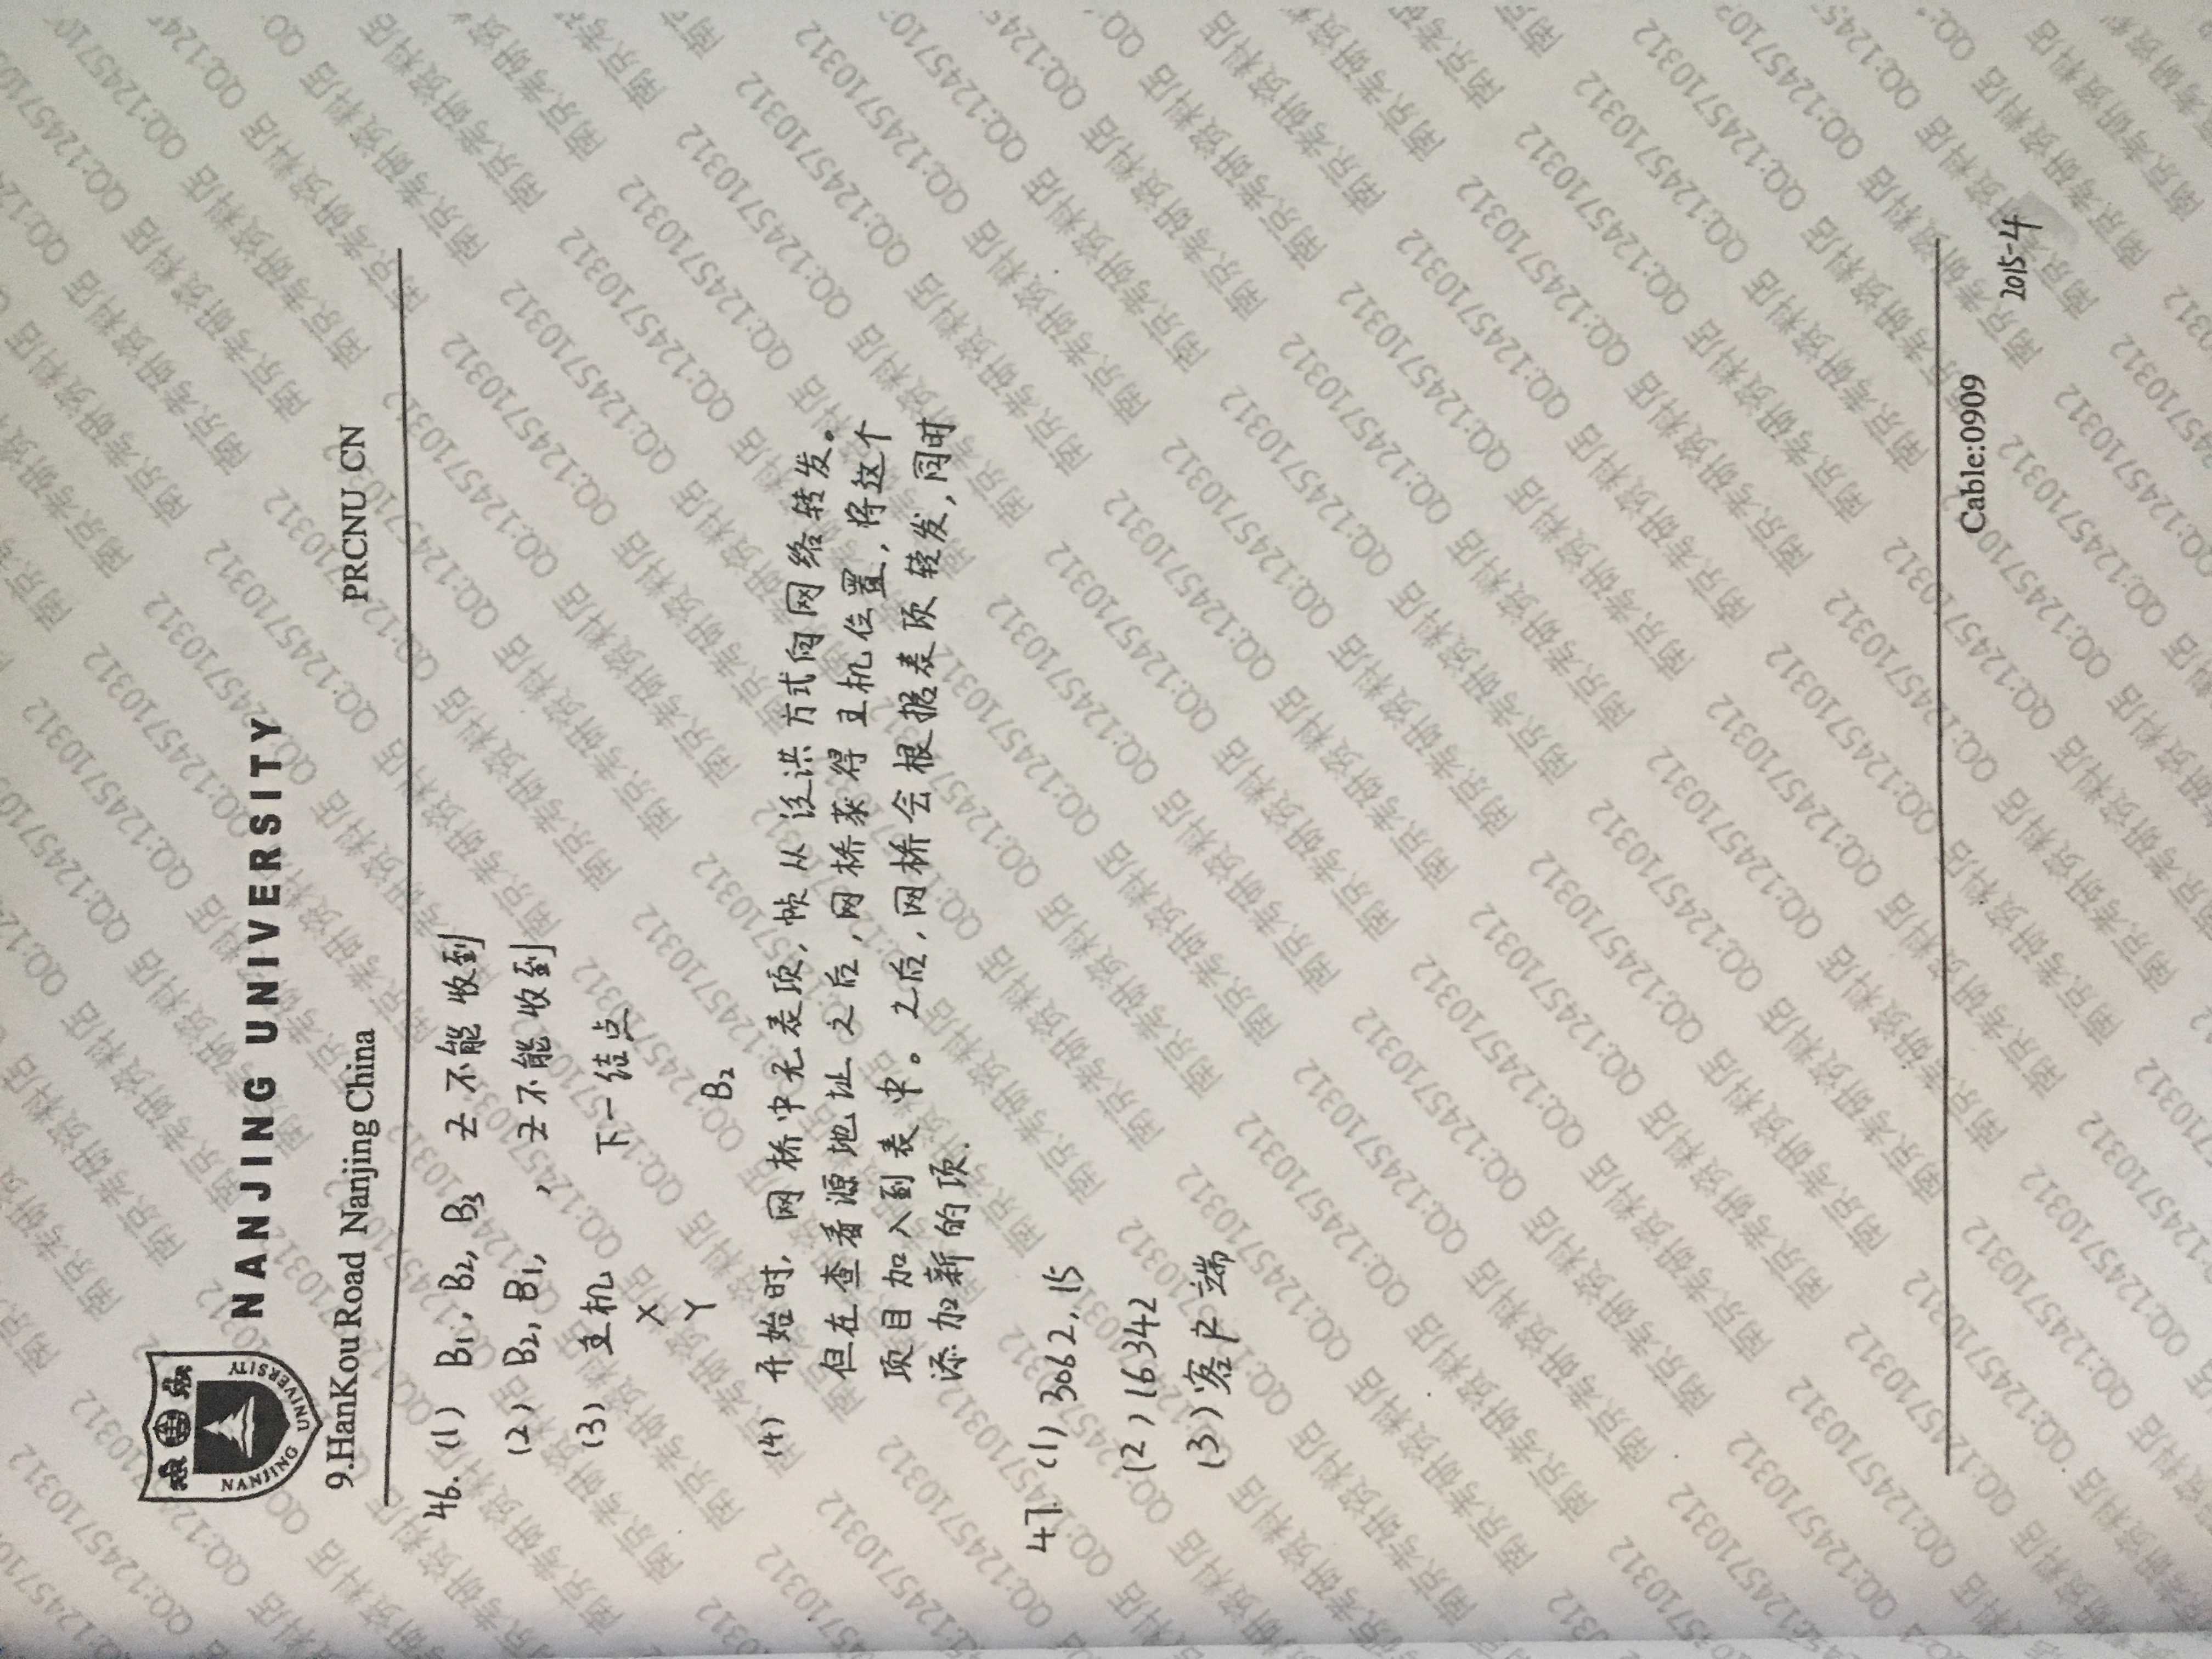 NANJING UNIVERSITY
NANJING UNIVERSITY
9.HanKou Road Nanjing China PRCNU CN
46. (1) B1, B2, B3 Z 不能收到
(2) B2, B1, , Z 不能收到
(3) 主机 下一结点
X
Y B2
(4) 开始时, 网桥中无表项, 帧从泛洪方式向网络转发。
但在查看源地址之后, 网桥获得主机位置, 将这个
项目加入到表中。之后, 网桥会根据表项转发, 同时
添加新的项.
47. (1) 3062, 15
(2) 16342
(3) 客户端
Cable:0909
2015-4
南京考研资料店 QQ:1245710312